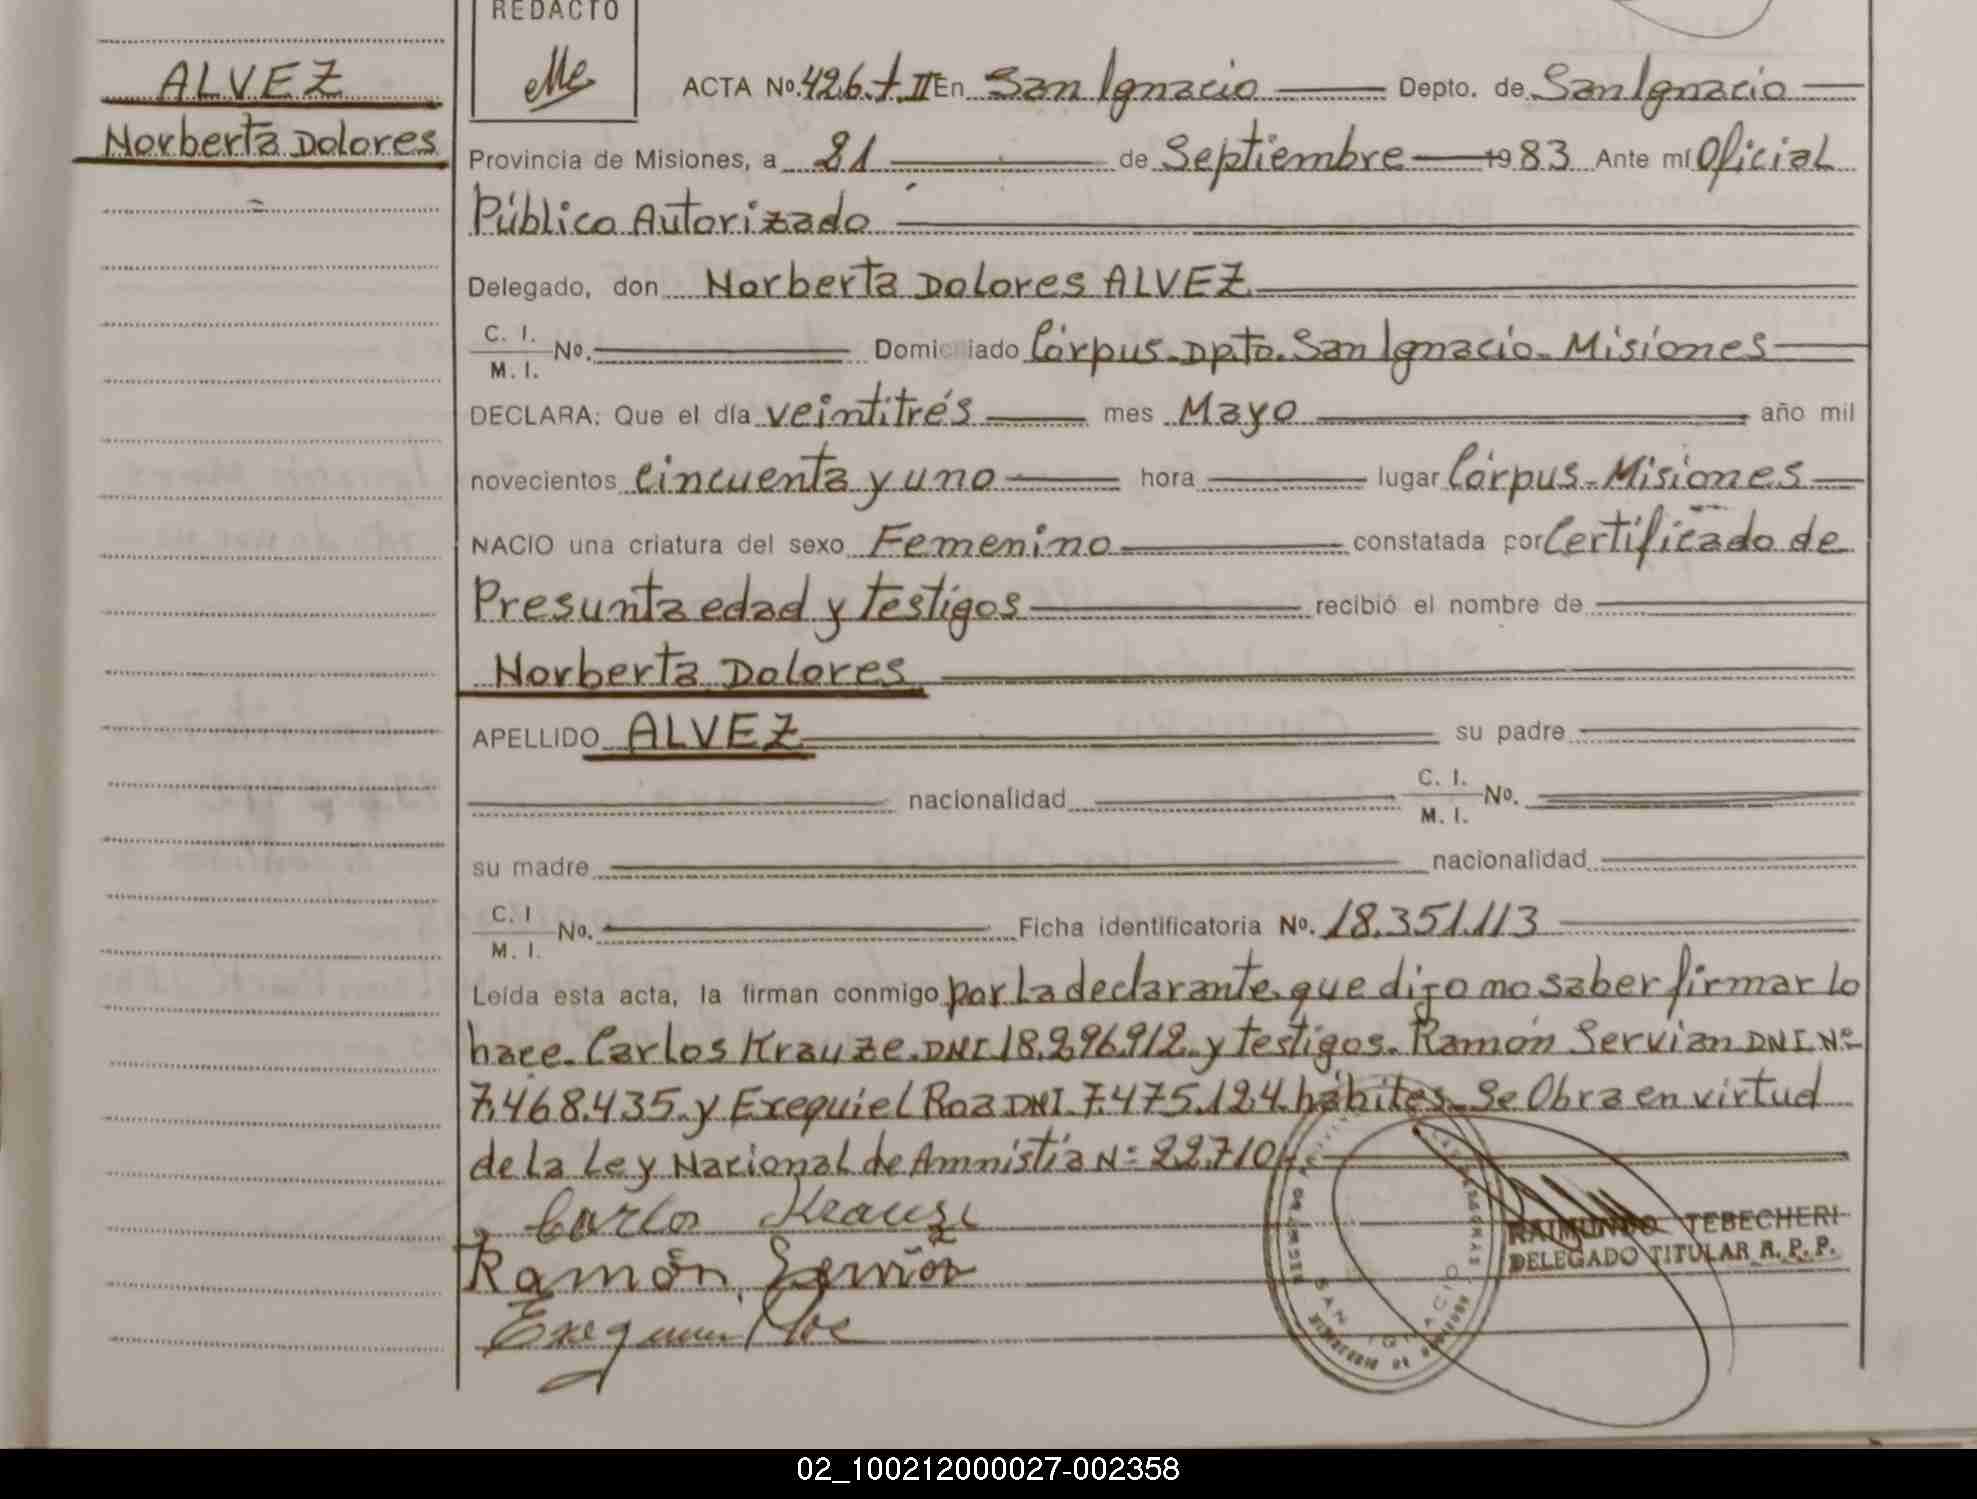 REDACTO
ALVEZ
Norberta Dolores
ACTA Nº. 426. t. II En San Ignacio Depto. de San Ignacio
Provincia de Misiones, a 21 de Septiembre 1983 Ante mí Oficial
Público Autorizado
Delegado, don Norberta Dolores ALVEZ
C. I.
M. I. Nº. Domiciliado Córpus. Dpto. San Ignacio. Misiones
DECLARA: Que el día veintitrés mes Mayo año mil
novecientos cincuenta y uno hora lugar Córpus. Misiones
NACIO una criatura del sexo Femenino constatada por Certificado de
Presunta edad y testigos recibió el nombre de
Norberta Dolores
APELLIDO ALVEZ su padre
nacionalidad C. I.
M. I. Nº.
su madre nacionalidad
C. I
M. I. Nº. Ficha identificatoria Nº. 18.351.113
Leída esta acta, la firman conmigo por la declarante que dijo no saber firmar lo
hace. Carlos Krauze. DNI 18.296.912. y testigos. Ramón Servian DNI Nº
7.468.435. y Exequiel Roa DNI 7.475.124. hábiles. Se Obra en virtud
de la Ley Nacional de Amnistía Nº 22.710//.
Carlos Krauze
Ramón Servian
Exequiel Roa
RAIMUNDO TEBECHERI
DELEGADO TITULAR R. P. P.
SAN IGNACIO
02_100212000027-002358